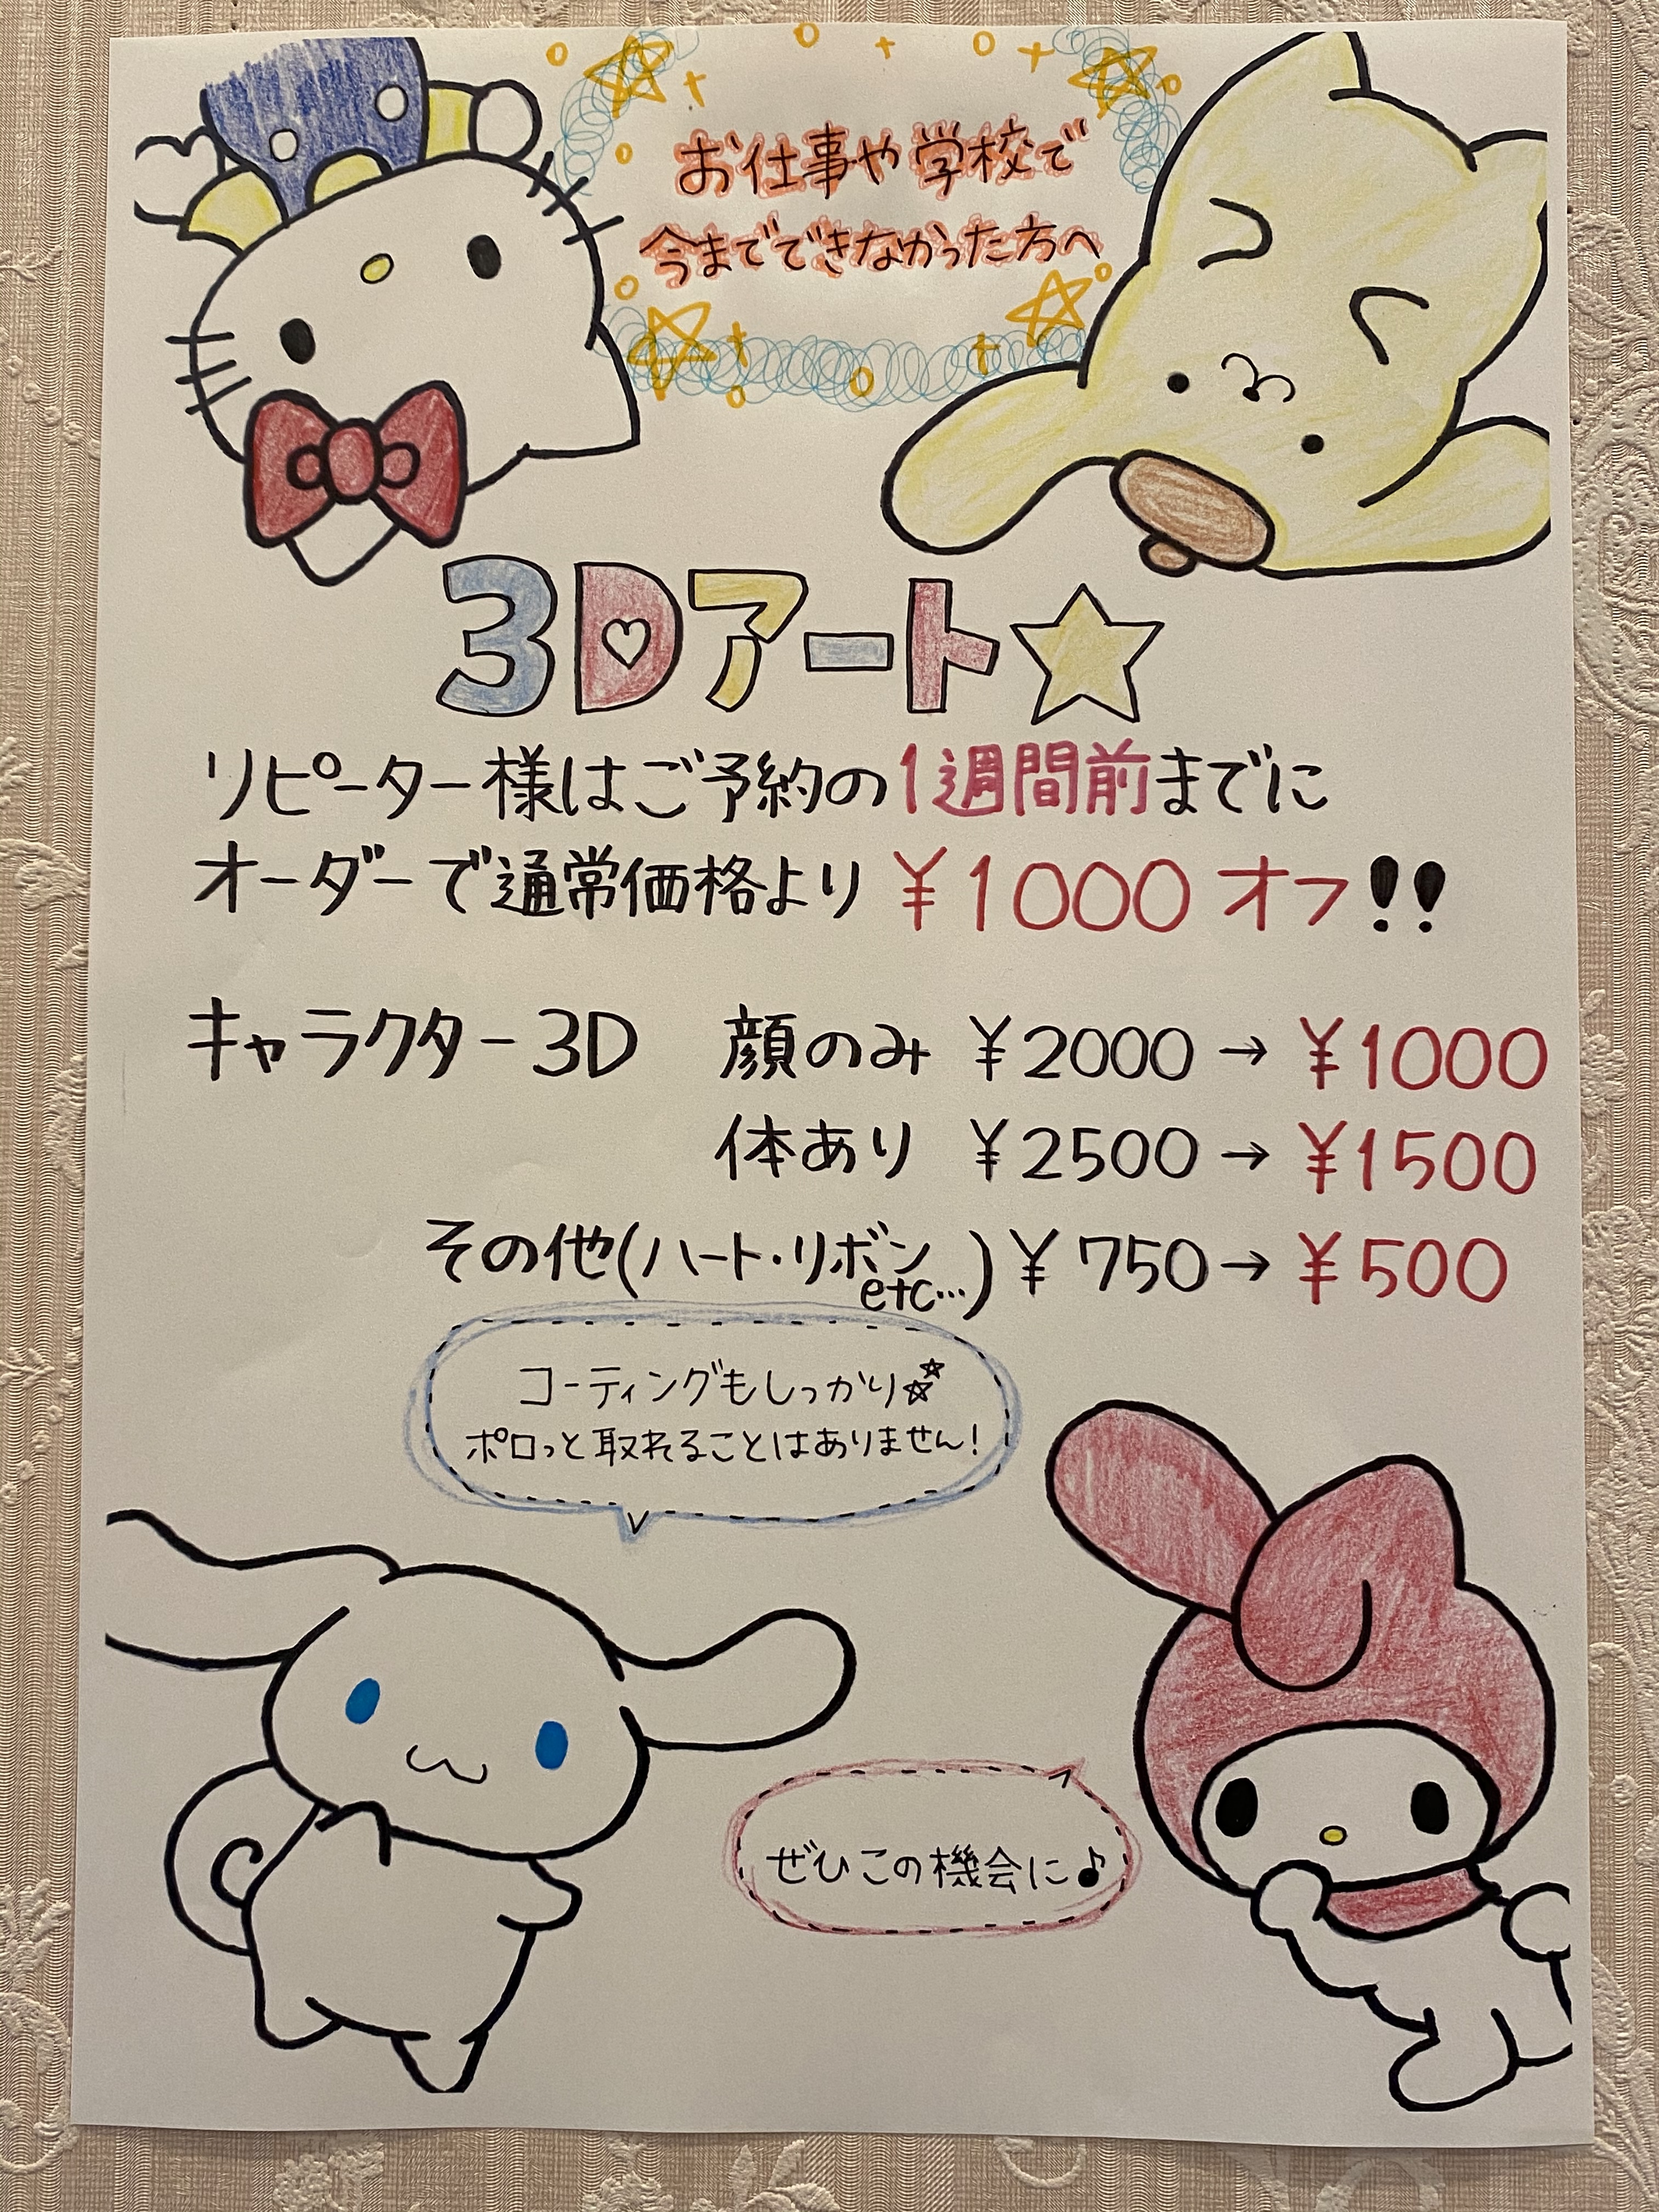 お仕事や学校で
今までできなかった方へ
3Dアート☆
リピーター様はご予約の1週間前までに
オーダーで通常価格より ¥1000 オフ!!
キャラクター3D 顔のみ ¥2000→¥1000
体あり ¥2500→¥1500
その他(ハート・リボン etc…)¥750→¥500
コーティングもしっかり☆☆
ポロっと取れることはありません!
ぜひこの機会に♪